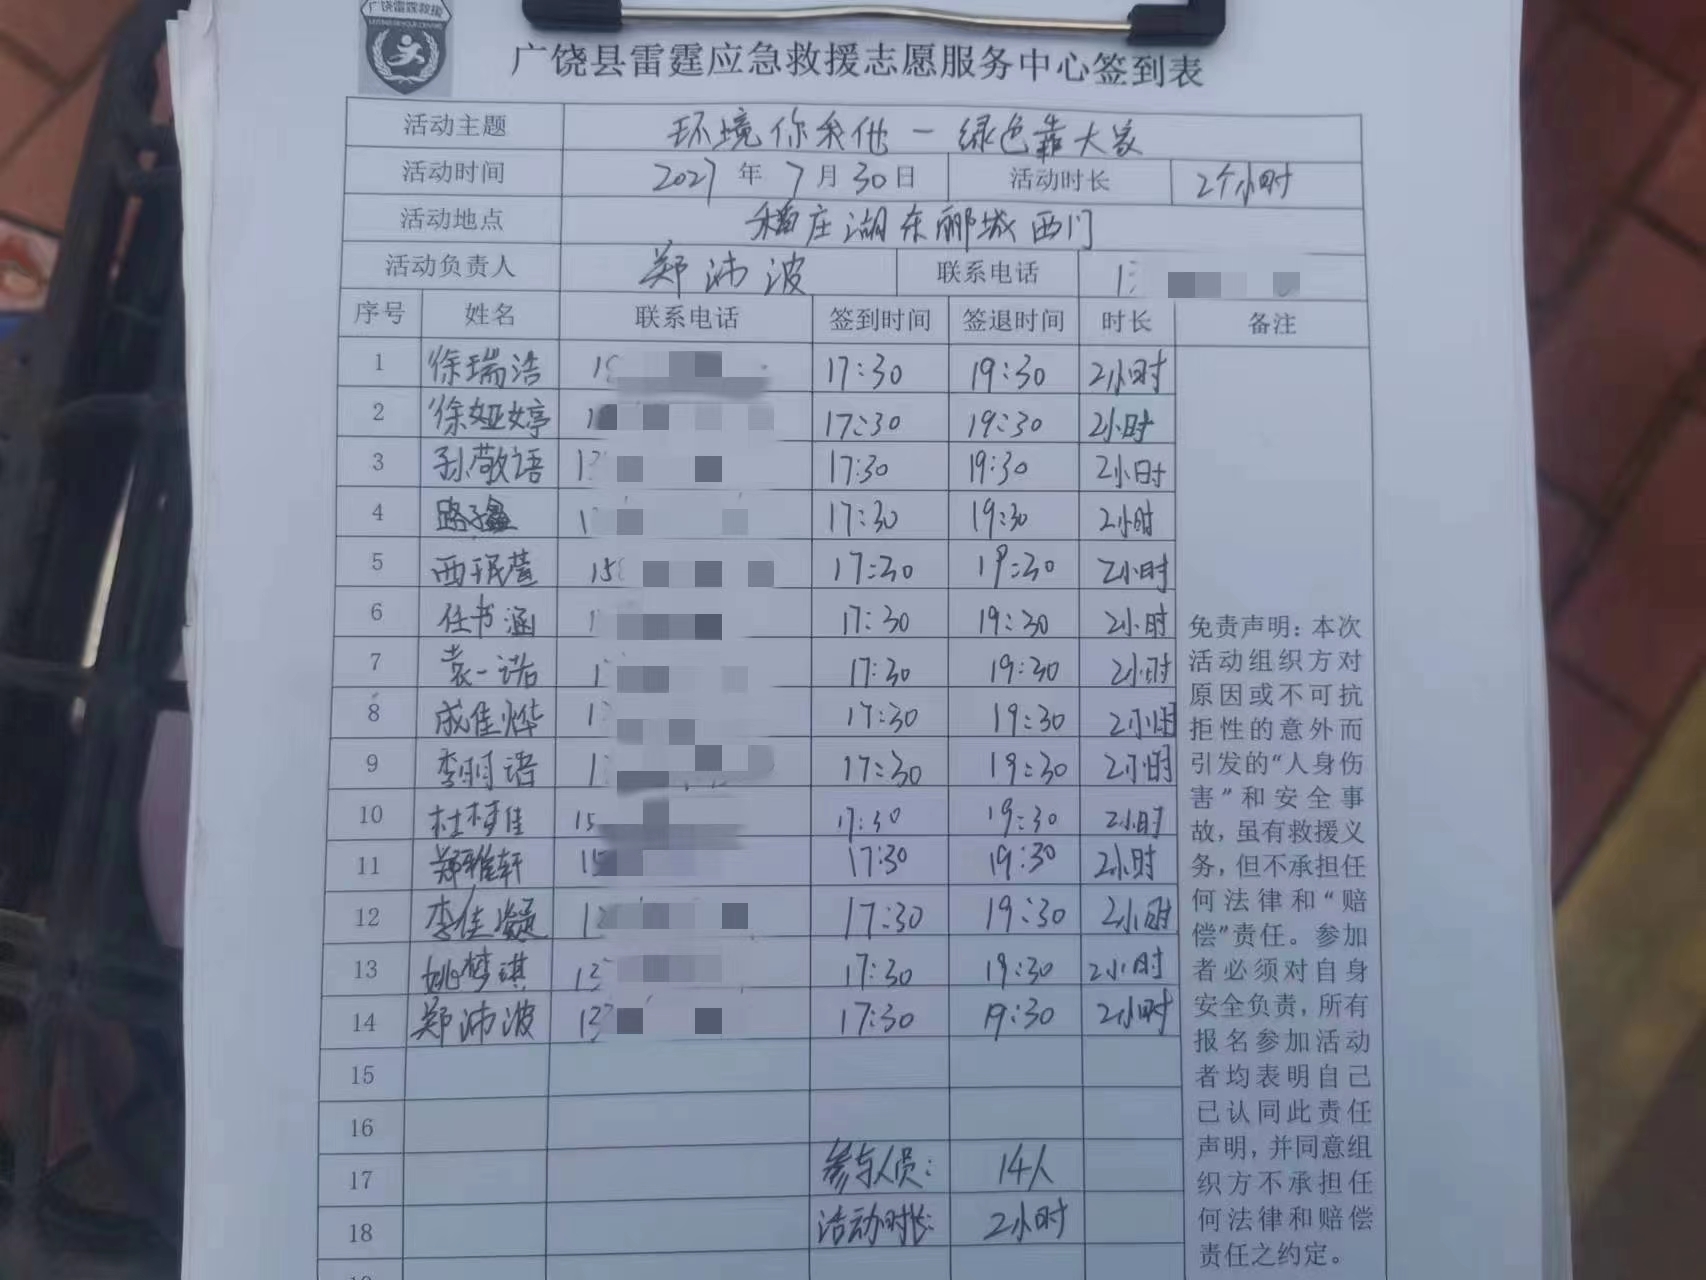 广饶雷霆救援
广饶县雷霆应急救援志愿服务中心签到表
活动主题 环境你我他一绿色靠大家
活动时间 2021年7月30日 活动时长 2个小时
活动地点 稻庄湖东郦城西门
活动负责人 郑沛波 联系电话 1
序号 姓名 联系电话 签到时间 签退时间 时长 备注
1 徐瑞浩 17:30 19:30 2小时
2 徐娅婷 17:30 19:30 2小时
3 孙敬语 13 17:30 19:30 2小时
4 路子鑫 1 17:30 19:30 2小时
5 西珉萱 15 17:30 19:30 2小时
6 任书涵 1 17:30 19:30 2小时
7 袁一诺 1 17:30 19:30 2小时
8 成佳烨 1 17:30 19:30 2小时
9 李羽语 1 17:30 19:30 2小时
10 杜梦佳 15 17:30 19:30 2小时
11 郑雅轩 15 17:30 19:30 2小时
12 李佳凝 1 17:30 19:30 2小时
13 姚梦琪 13 17:30 19:30 2小时
14 郑沛波 13 17:30 19:30 2小时
15
16
17 参与人员: 14人
18 活动时长: 2小时
免责声明：本次
活动组织方对
原因或不可抗
拒性的意外而
引发的“人身伤
害”和安全事
故，虽有救援义
务，但不承担任
何法律和“赔
偿”责任。参加
者必须对自身
安全负责，所有
报名参加活动
者均表明自己
已认同此责任
声明，并同意组
织方不承担任
何法律和赔偿
责任之约定。